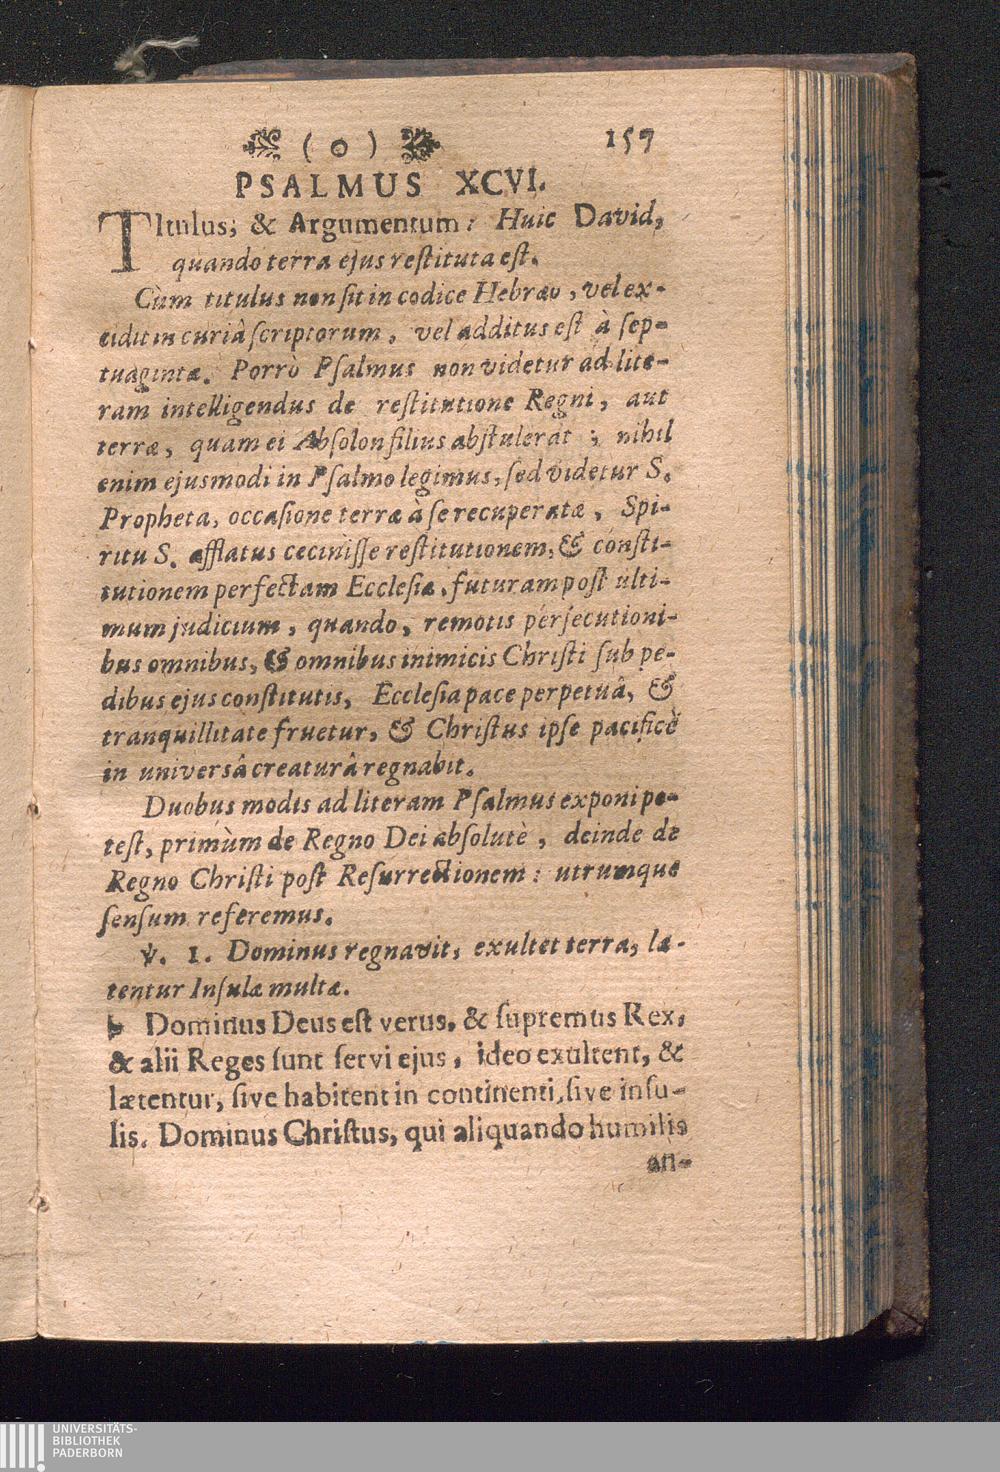 ( o ) 157
PSALMUS XCVI.
TItulus; & Argumentum: Huic David,
quando terra ejus reſtituta eſt.
Cùm titulus non ſit in codice Hebræo, vel ex-
cidit in curiâ ſcriptorum, vel additus eſt à ſep-
tuagintæ. Porrò Pſalmus non videtur ad lite-
ram intelligendus de reſtitutione Regni, aut
terræ, quam ei Abſolon filius abſtulerat; nihil
enim ejusmodi in Pſalmo legimus, ſed videtur S.
Propheta, occaſione terræ à ſe recuperatæ, Spi-
ritu S. afflatus ceciniſſe reſtitutionem, & conſti-
tutionem perfectam Eccleſiæ, futuram poſt ulti-
mum judicium, quando, remotis perſecutioni-
bus omnibus, & omnibus inimicis Chriſti ſub pe-
dibus ejus conſtitutis, Eccleſia pace perpetuâ, &
tranquillitate fruetur, & Chriſtus ipſe pacificè
in universâ creaturâ regnabit.
Duobus modis ad literam Pſalmus exponi po-
teſt, primùm de Regno Dei abſolutè, deinde de
Regno Chriſti poſt Reſurrectionem: utrumque
ſenſum referemus.
℣. 1. Dominus regnavit, exultet terra, læ-
tentur Inſulæ multæ.
Dominus Deus eſt verus, & ſupremus Rex,
& alii Reges ſunt ſervi ejus, ideo exultent, &
lætentur, ſive habitent in continenti, ſive inſu-
lis. Dominus Chriſtus, qui aliquando humilis
an-
UNIVERSITÄTS-
BIBLIOTHEK
PADERBORN